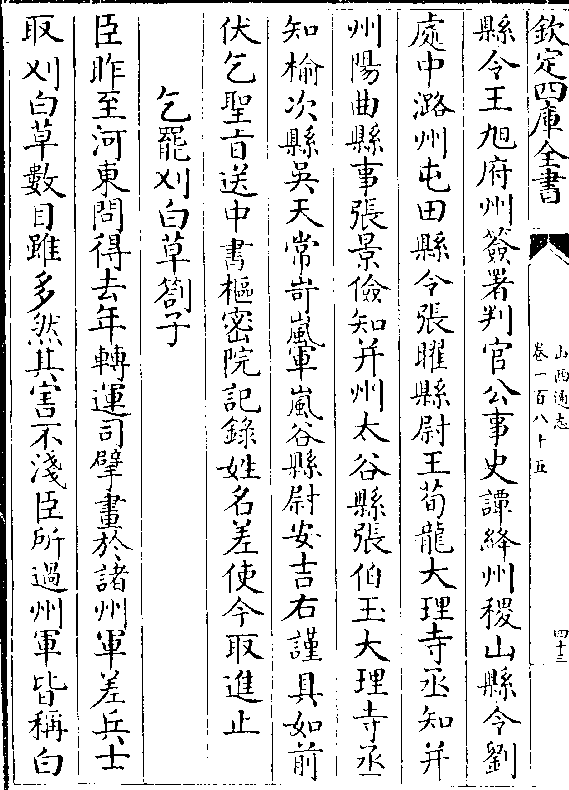 欽定四庫全書
山西通志
卷一百八十五
四十三
縣令王旭府州簽署判官公事史譚絳州稷山縣令劉
處中潞州屯田縣令張曜縣尉王荀龍大理寺丞知并
州陽曲縣事張景儉知并州太谷縣張伯玉大理寺丞
知榆次縣吳天常岢嵐軍嵐谷縣尉安吉右謹具如前
伏乞聖旨送中書樞密院記錄姓名差使今取進止
乞罷刈白草劄子
臣昨至河東問得去年轉運司擘畫於諸州軍差兵士
取刈白草數目雖多然其害不淺臣所過州軍皆稱白